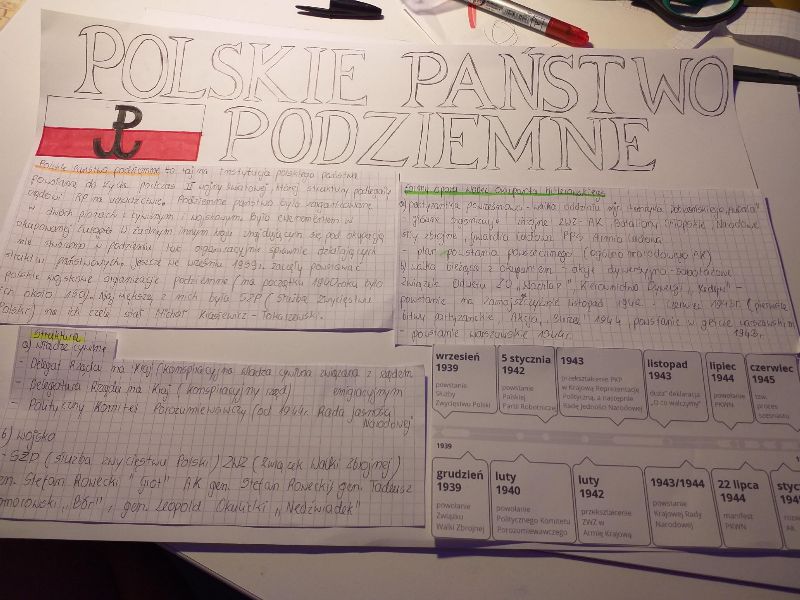 POLSKIE PAŃSTWO
PODZIEMNE
Polskie Państwo podziemne to tajna instytucja polskiego państwa
powołane do życia podczas II wojny światowej, której struktury podlegały
rządowi RP na uchodźstwie. Podziemne państwo było zorganizowane
w dwóch pionach: cywilnym i wojskowym. Było ewenementem w
okupowanej Europie w żadnym innym kraju znajdującym się pod okupacją
nie stworzono w podziemiu tak organizacyjnie sprawnie działających
struktur państwowych. Jeszcze we wrześniu 1939r. zaczęły powstawać
polskie wojskowe organizacje podziemne (na początku 1940 roku było
ich około 150). Największą z nich była SZP (Służba Zwycięstwu
Polski) na ich czele stał Michał Karasiewicz-Tokarzewski.
Struktura
a) władze cywilne
- Delegat Rządu na Kraj (konspiracyjna władza cywilna związana z rządem
emigracyjnym
- Delegatura Rządu na Kraj (konspiracyjny rząd)
- Polityczny Komitet Porozumiewawczy (od 1944r. Rada Jedności
Narodowej
b) wojsko
- SZP (służba zwycięstwu Polski) ZWZ (związek Walki Zbrojnej)
gen. Stefan Rowecki "Grot" AK gen. Stefan Rowecki, gen. Tadeusz
Komorowski "Bór", gen. Leopold Okulicki "Niedźwiadek"
Formy oporu wobec okupanta hitlerowskiego
a) partyzantka powrześniowa - walka oddziału mjr. Henryka Dobrzańskiego „Hubala"
- główne organizacje zbrojne ZWZ-AK, Bataliony Chłopskie, Narodowe
siły zbrojne, gwardia ludowa PPR Armia Ludowa
- plan powstania powszechnego (ogólnonarodowego AK)
b) walka bieżąca z okupantem - akcje dywersyjno-sabotażowe
związek Odwetu ZO, „Wachlarz", Kierownictwo Dywersji „Kedyw"-
powstanie na zamojszczyźnie listopad 1942 - czerwiec 1943r. (pierwsze
bitwy partyzanckie) Akcja „Burza" 1944, powstanie w getcie warszawskim
1943.
- powstanie warszawskie 1944r.
wrzesień 1939
powstanie Służby Zwycięstwu Polski
5 stycznia 1942
powstanie Polskiej Partii Robotniczej
1943
przekształcenie PKP w Krajową Reprezentację Polityczną, a następnie Radę Jedności Narodowej
listopad 1943
deklaracja „O co walczymy"
lipiec 1944
powołanie PKWN
czerwiec 1945
tzw. proces szesnastu
1939
grudzień 1939
powołanie Związku Walki Zbrojnej
luty 1940
powołanie Politycznego Komitetu Porozumiewawczego
luty 1942
przekształcenie ZWZ w Armię Krajową
1943/1944
powstanie Krajowej Rady Narodowej
22 lipca 1944
manifest PKWN